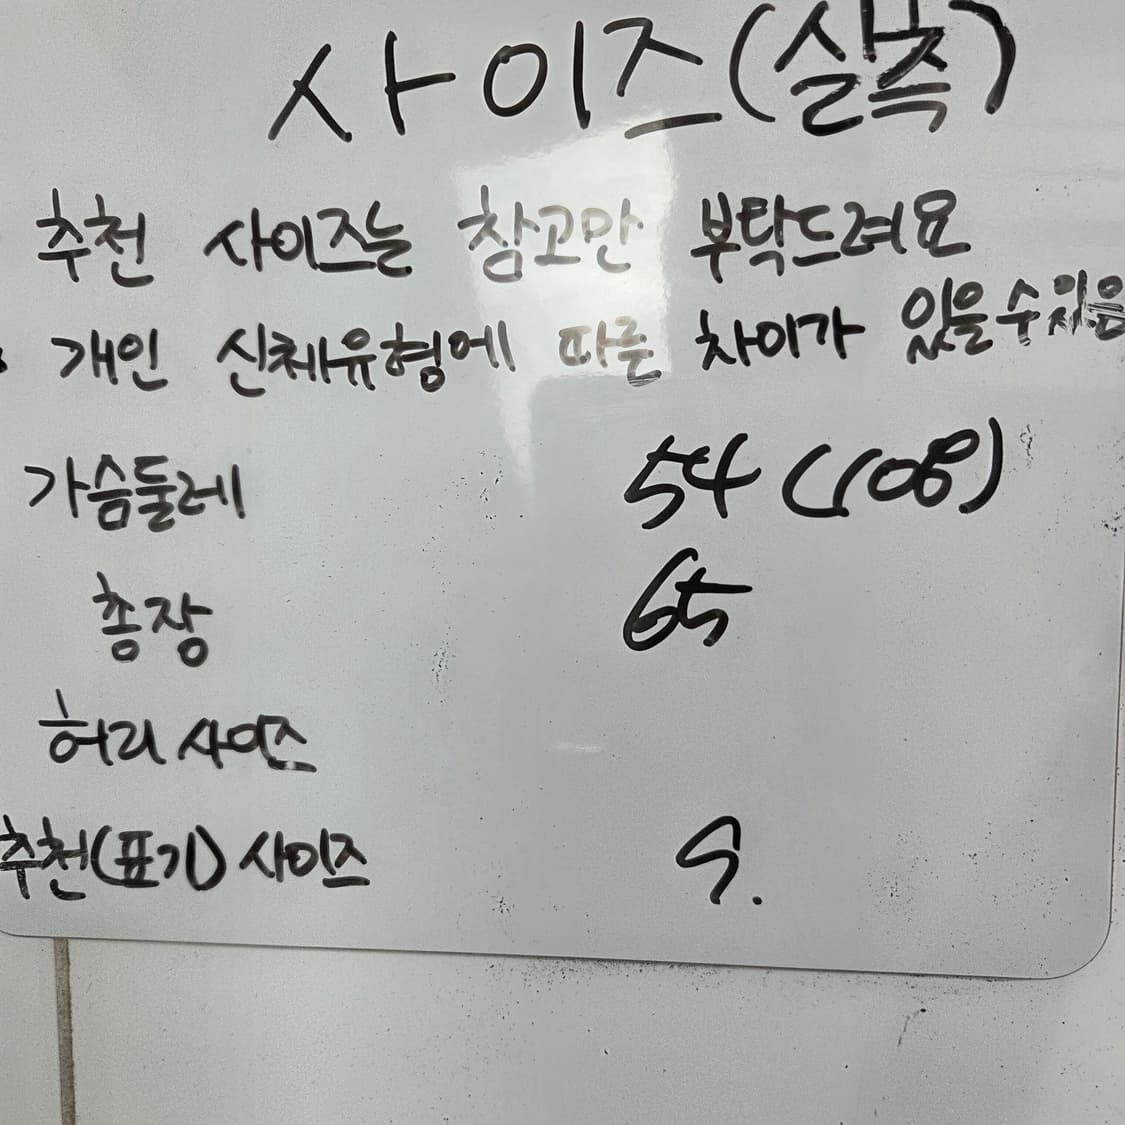 사이즈(실측)
추천 사이즈는 참고만 부탁드려요
개인 신체유형에 따른 차이가 있을수있음
가슴둘레 54 (108)
총장 65
허리 사이즈
추천(표기) 사이즈 S.